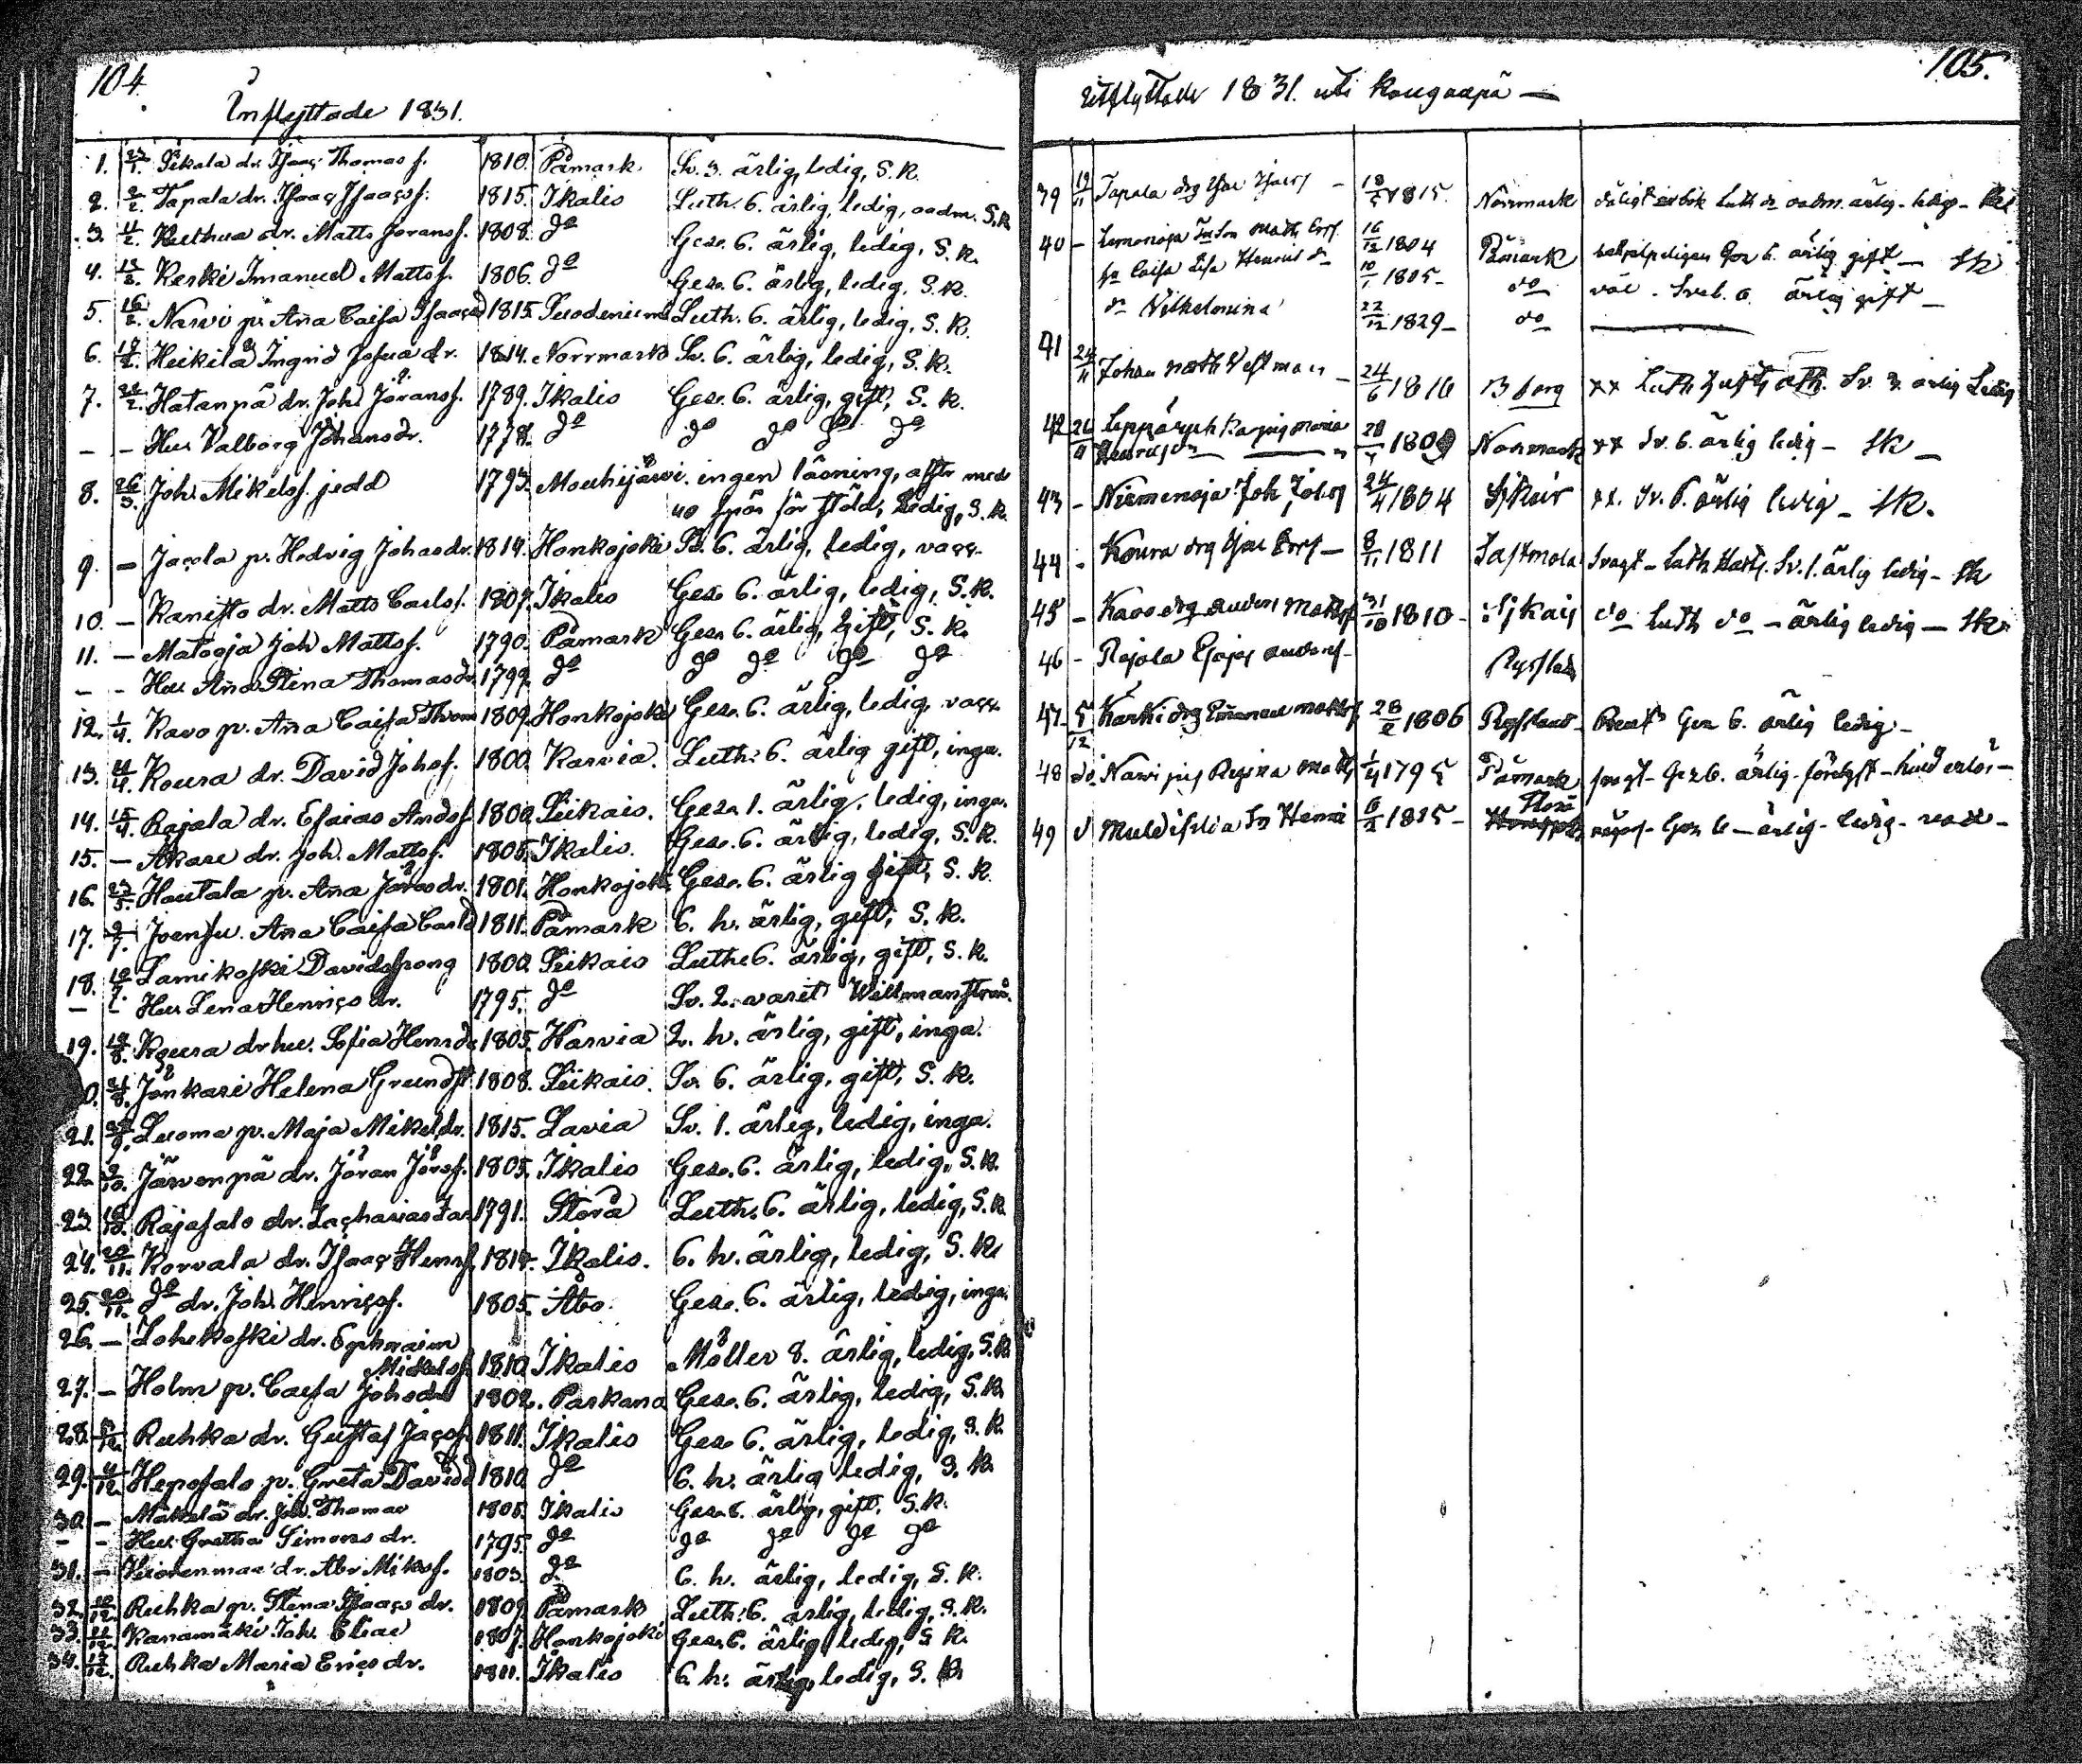 104
Inflyttade 1831.
1. 23/1. Pikala dr. Isaac Thomas s. 1810. Påmark. Sv. 3. ärlig, ledig, S. K.
2. 2/2. Tapala dr. Isaac Isaacss. 1815. Ikalis Luth. 6. ärlig, ledig, oadm. S. K
3. 11/2. dr. Matts Joranss. 1808. do Geze. 6. ärlig, ledig, S. K.
4. 13/2. Kerki Imanuel Mattss. 1806. do Geze. 6. ärlig, ledig, S. K.
5. 16/2. Narvi p. Aña Caisa Isaacsd 1815. Luth. 6. ärlig, ledig, S. K.
6. 19/2. Heikilä Ingrid Josua dr. 1814. Norrmark Sv. 6. ärlig, ledig, S. K.
7. 22/2. Hatanpä dr. Joh. Jöranss. 1789. Ikalis Geze. 6. ärlig, gift, S. K.
— — Hu. Valborg Johansdr. 1778. do do do do do
8. 26/3. Joh. Mikelss. jedd 1793. Mouhijärvi. ingen läsning, aftr. med
40 spör för stöld, ledig, S. K.
9. — Jacola p. Hedvig Johansdr. 1814. Honkojoki Sv. 6. ärlig, ledig, vacc.
10. — Kanisto dr. Matts Carls s. 1807. Ikalis Geze 6. ärlig, ledig, S. K.
11. — Matooja Joh Mattss. 1790. Påmark Geze. 6. ärlig, gift, S. K.
— — Hu. Aña Stina Thomasdr. 1799. do do do do do
12. 1/4. Kavo p. Aña Caisa Thom 1809. Honkojoki Geze. 6. ärlig, ledig, vacc.
13. 4/4. Koura dr. David Johss. 1800. Karvia. Luth. 6. ärlig gift, inga.
14. 15/4. Rajala dr. Esaias Andss. 1800. Siikais. Geze. 1. ärlig, ledig, inga.
15. — Askare dr. Joh. Mattss. 1805. Ikalis. Geze. 6. ärlig, ledig, S. K.
16. 23/5. Hautala p. Aña Jörasdr. 1801. Honkojoki Geze. 6. ärlig gift, S. K.
17. 9/7. Joensu. Aña Caisa Carlsd 1811. Påmark 6. h. ärlig, gift, S. K.
18. 10/7. Lamikoski David Spong 1800. Siikais Luth. 6. ärlig, gift, S. K.
— — Hu. Lena Henrics dr. 1795. do Sv. 2. varit Willmanstrand.
19. 19/8. Koura dr hu. Sofia Henrsdr 1805. Karvia 2. h. ärlig, gift, inga.
20. 21/8. Jönkari Helena Grundst. 1808. Siikais. Sv. 6. ärlig, gift, S. K.
21. 9. Luoma p. Maja Mikelsdr. 1815. Lavia Sv. 1. ärlig, ledig, inga.
22. 9/10. Järvenpä dr. Jöran Jörss. 1805. Ikalis Geze. 6. ärlig, ledig, S. K.
23. 10/10. Rajasalo dr. Zacharias Zac 1791. Storå Luth. 6. ärlig, ledig, S. K.
24. 20/11. Korvala dr. Isaac Henrss. 1814. Ikalis. 6. h. ärlig, ledig, S. K.
25. 20/11. do dr. Joh. Henricss. 1805. Åbo. Geze. 6. ärlig, ledig, inga.
26. — Lohikoski dr. Ephraim
Mickelss. 1810. Ikalis Möller 8. ärlig, ledig, S. K.
27. — Holm p. Caisa Johsdr 1802. Parkano Geze. 6. ärlig, ledig, S. K.
28. 12. Ruhka dr. Gustaf Jacss. 1811. Ikalis Geze 6. ärlig, ledig, S. K.
29. 4/12. Heposalo p. Greta Davidsd 1810. do 6. h. ärlig ledig, S. K.
30. — Mäkelä dr. Joh. Thomas 1805. Ikalis Geze. 6. ärlig, gift, S. K.
— — Hu. Gretha Simons dr. 1795. do do do do do
31. — dr. Abr. Mikss. 1803. do 6. h. ärlig, ledig, S. K.
32. 10/12. Ruhka p. Stina Isaacs dr. 1809. Påmark Luth. 6. ärlig, ledig, S. K.
33. 11/12. Kanamäki Joh. Elias 1807. Honkojoki Geze. 6. ärlig ledig, S. K.
34. 17/12. Ruhka Maria Erics dr. 1811. Ikalis 6. h. ärlig, ledig, S. K.
105.
Utflyttade 1831. uti Kangaspä —
39 19/11 Tapala drg Isac Isacss — 18/5 1815. Norrmark Luth oadm. ärlig - ledig -
40 — Lemonoja Matts Ersss 16/12 1804 Påmark Gez 6. ärlig gift — SK
Caisa Lisa Henrics dr 10/1 1805 — do väl - Sveb. 6. ärlig gift —
dr Vilhelmina 22/12 1829 — do
41 24/11 Johan Math Vestman — 24/6 1816 Bborg xx Sv. 3. ärlig Ledig
42 26/11 Kajsa Maria 28 1809 Norrmark xx Sv. 6. ärlig ledig — SK —
43 — Niemenoja Joh Johss 24/4 1804 Sjkais xx. Sv. 6. ärlig ledig — SK.
44 — Koura drg Isac Ersss — 8/11 1811 Sastmola Svagt - Luth Hustf. Sv. 1. ärlig ledig — SK
45 — Kavo drg Anders Mattss 31/10 1810 — Sjkais do Luth do — ärlig ledig — SK
46 — Rajala Esajas Anderss — Ryssland
47 5/12 Kärki drg Emanuel Mattss 28/2 1806 Ryssland — Gez 6. ärlig ledig —
48 do Narvi pig Regina Matts 1/4 1795 Påmark svagt - Gez 6. ärlig -
49 d Muldislia Sn Henric 6/2 1815 — Storå Gez 6 — ärlig - ledig -